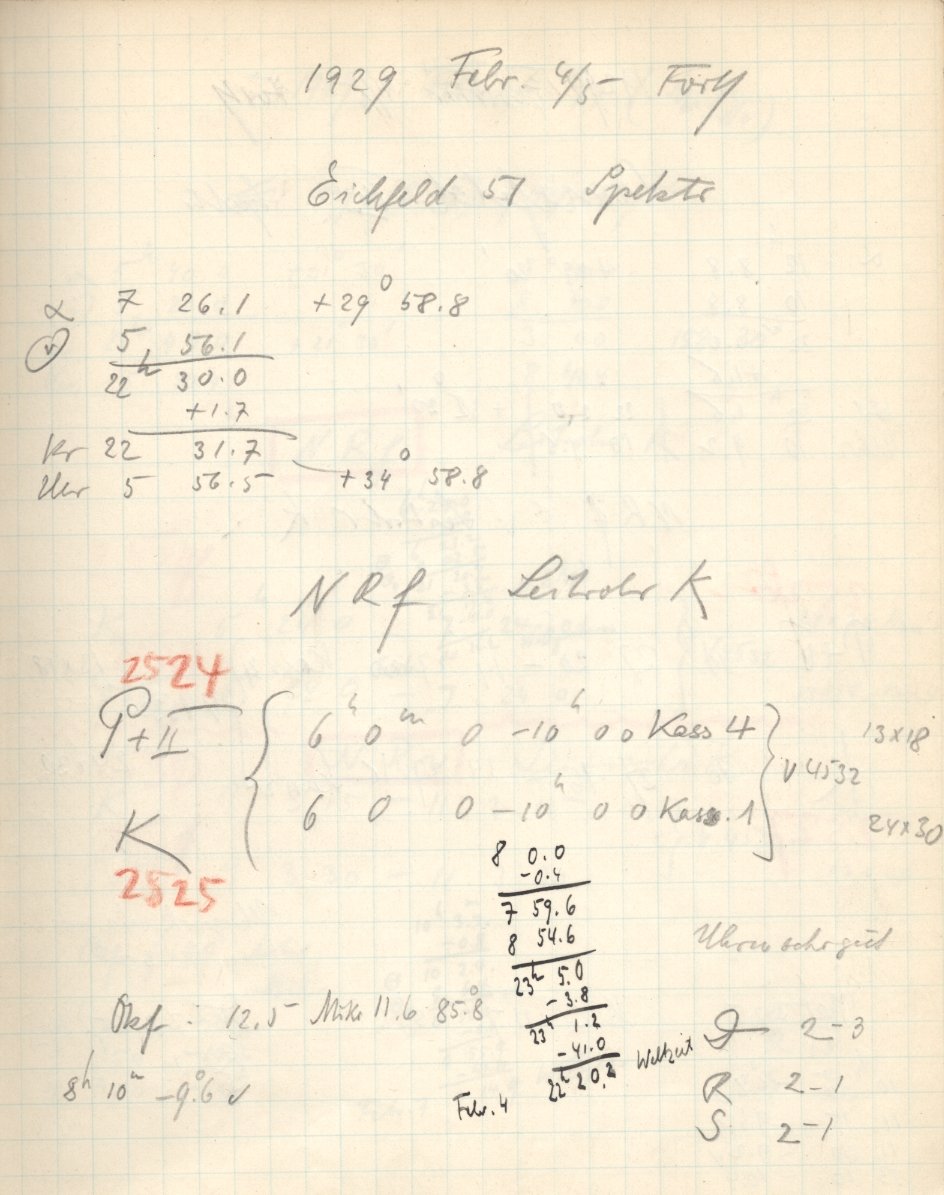 1929 Febr. 4/5
Eichfeld 51 Spektr
α 7 26.1 +29° 58.8
5 56.1
22h 30.0
+1.7
Kr 22 31.7
+34° 58.8
Uhr 5 56.5
NRf Leitrohr K
2524
P+II 6h 0m 0 -10h 0 0 Kass 4
13x18
V 4532
K 6 0 0 -10h 0 0 Kass. 1
24x30
2525
8 0.0
-0.4
7 59.6
8 54.6
23h 5.0
-3.8
23h 1.2
-41.0
22h 20.2 Weltzeit
Febr. 4
Uhren sehr gut
Okf. 12.5 Mikr 11.6 85.8
8h 10m -9°.6 ✓
D 2-3
R 2-1
S 2-1